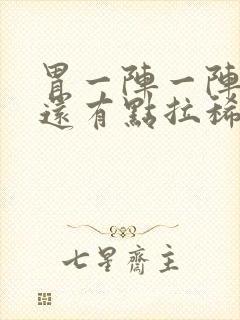 胃一陣一陣
還有點拉稀
七星齋主